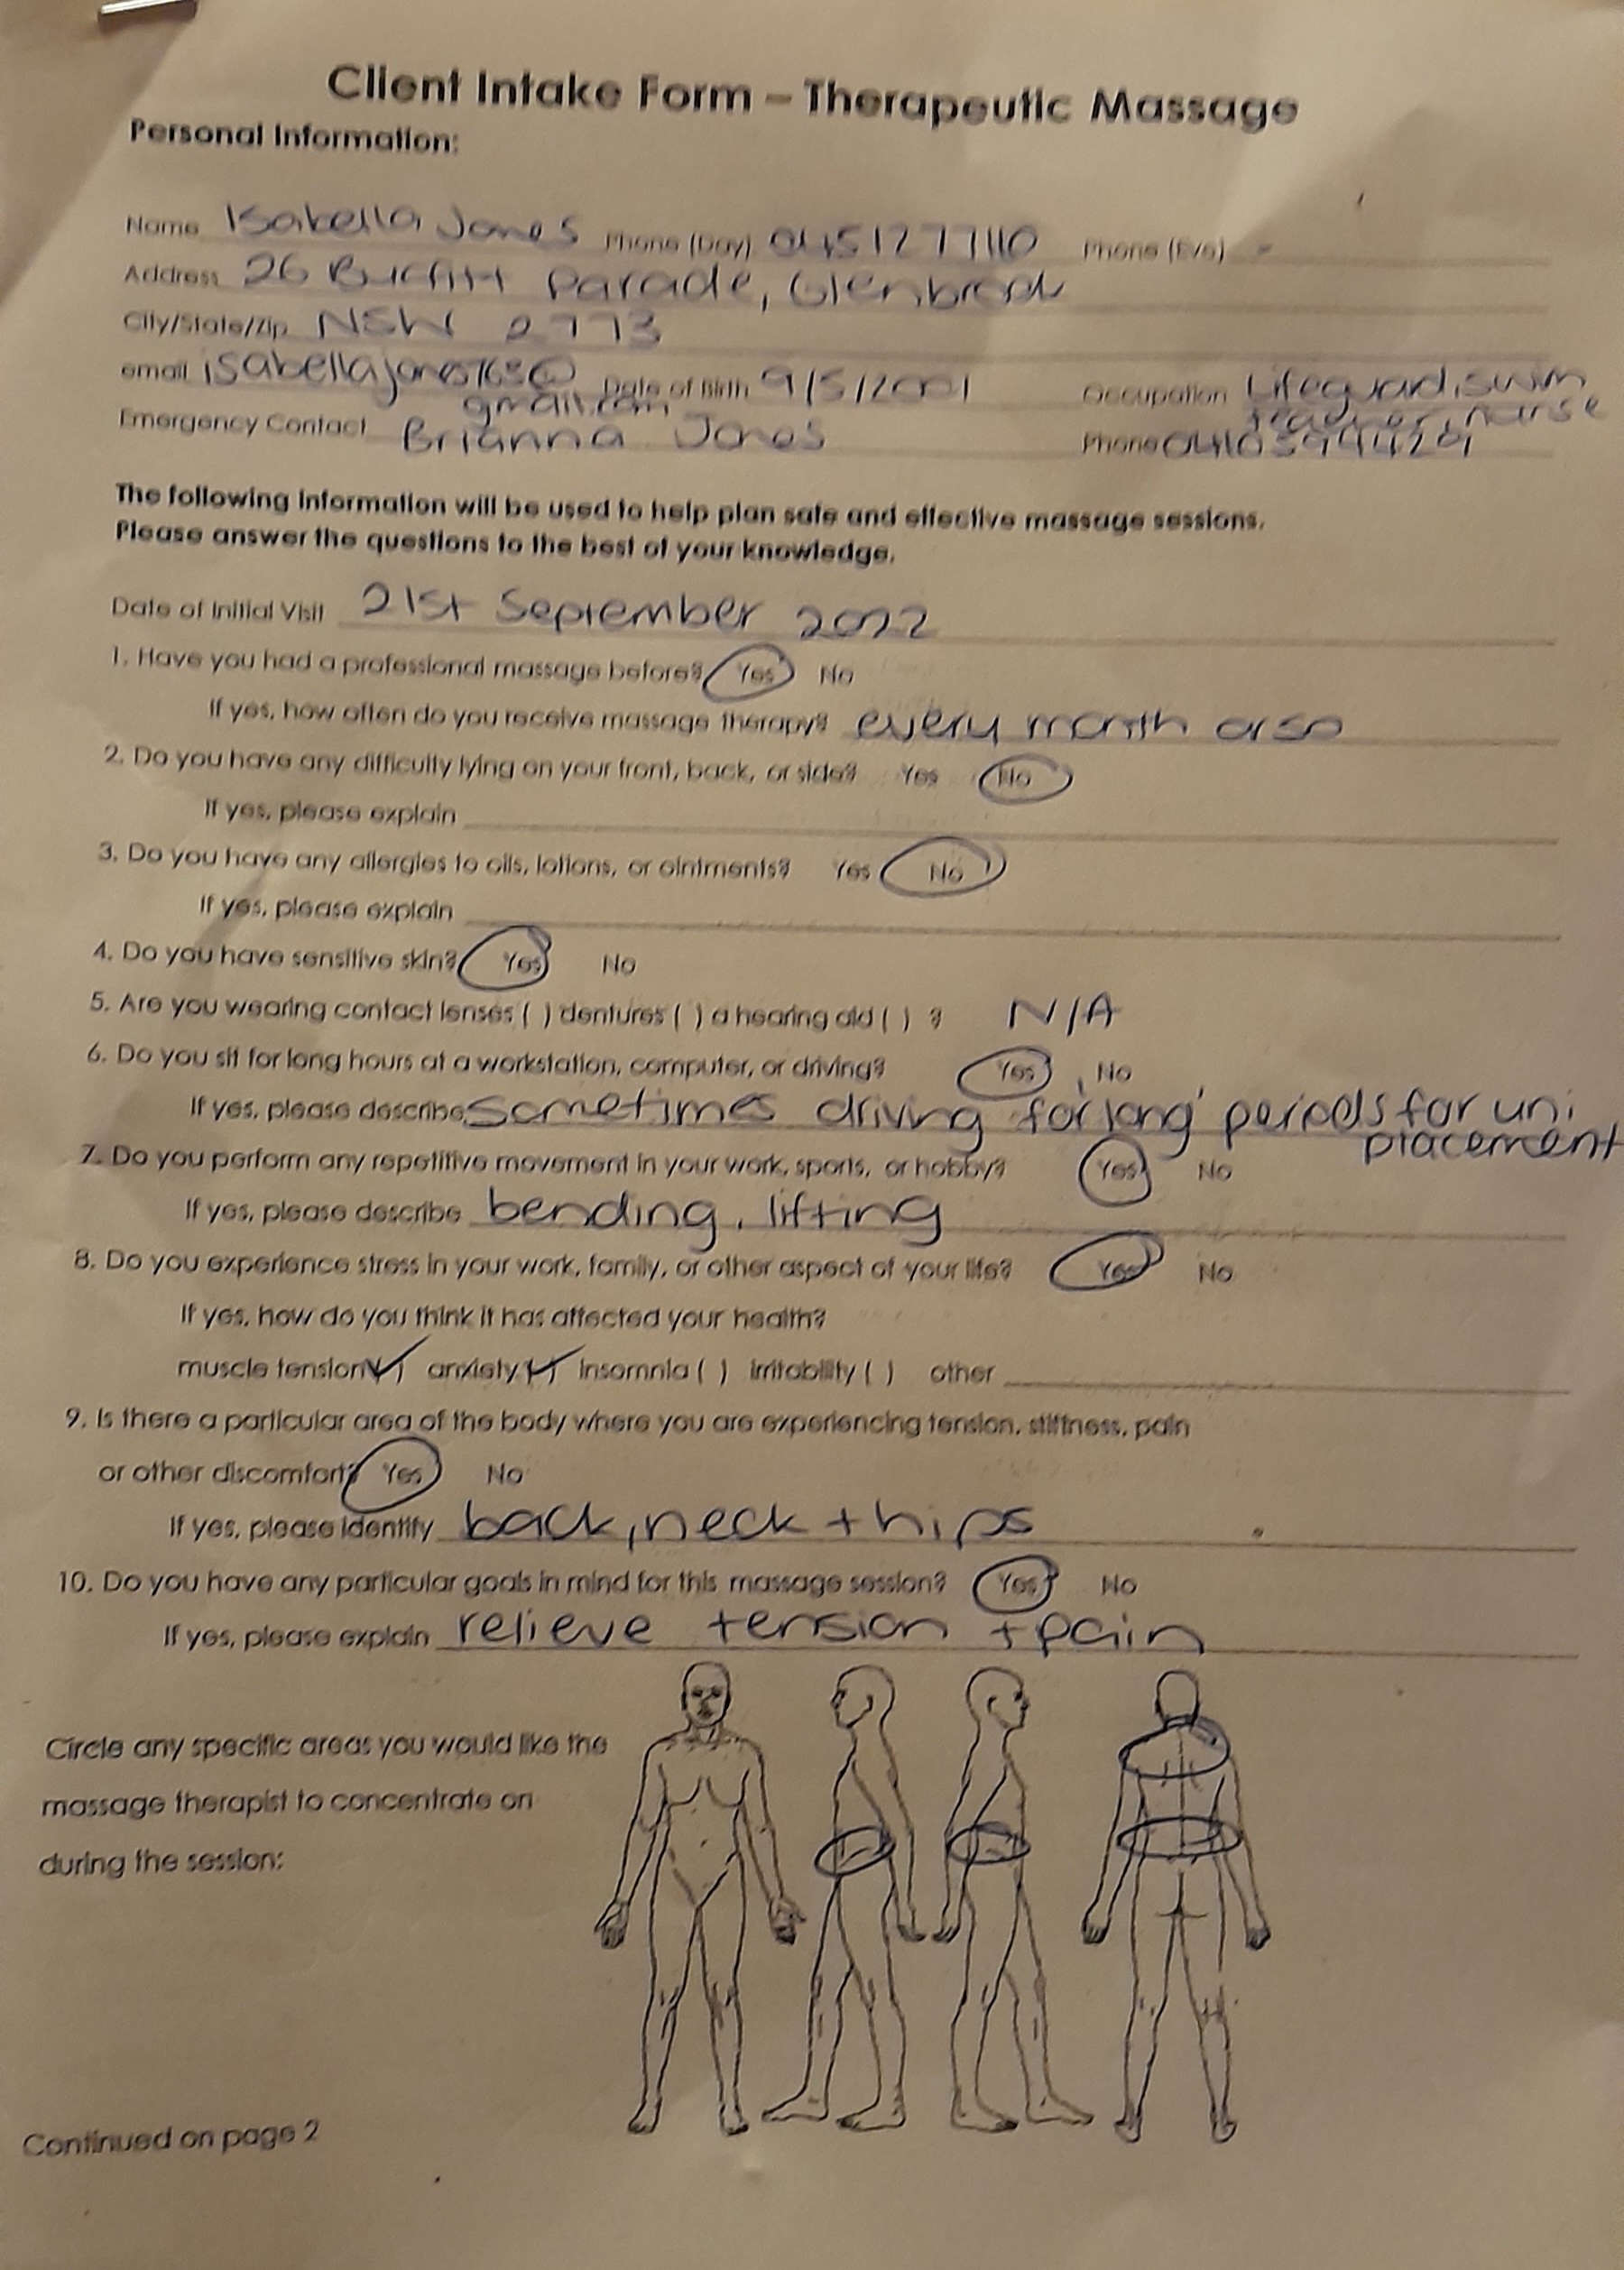 Client Intake Form – Therapeutic Massage
Personal Information:
Name Isabella Jones Phone (Day) 0451277110 Phone (Eve) -
Address 26 Burfitt Parade, Glenbrook
City/State/Zip NSW 2773
email isabellajones763@ gmail.com Date of Birth 9/5/2001 Occupation Lifeguard, swim teacher, nurse
Emergency Contact Brianna Jones Phone
The following information will be used to help plan safe and effective massage sessions.
Please answer the questions to the best of your knowledge.
Date of Initial Visit 21st September 2022
1. Have you had a professional massage before? Yes No
If yes, how often do you receive massage therapy? every month or so
2. Do you have any difficulty lying on your front, back, or side? Yes No
If yes, please explain
3. Do you have any allergies to oils, lotions, or ointments? Yes No
If yes, please explain
4. Do you have sensitive skin? Yes No
5. Are you wearing contact lenses ( ) dentures ( ) a hearing aid ( ) ? N/A
6. Do you sit for long hours at a workstation, computer, or driving? Yes No
If yes, please describe sometimes driving for long periods for uni placement
7. Do you perform any repetitive movement in your work, sports, or hobby? Yes No
If yes, please describe bending, lifting
8. Do you experience stress in your work, family, or other aspect of your life? Yes No
If yes, how do you think it has affected your health?
muscle tension (✓) anxiety (✓) insomnia ( ) irritability ( ) other
9. Is there a particular area of the body where you are experiencing tension, stiffness, pain
or other discomfort? Yes No
If yes, please identify back, neck + hips
10. Do you have any particular goals in mind for this massage session? Yes No
If yes, please explain relieve tension + pain
Circle any specific areas you would like the
massage therapist to concentrate on
during the session:
Continued on page 2